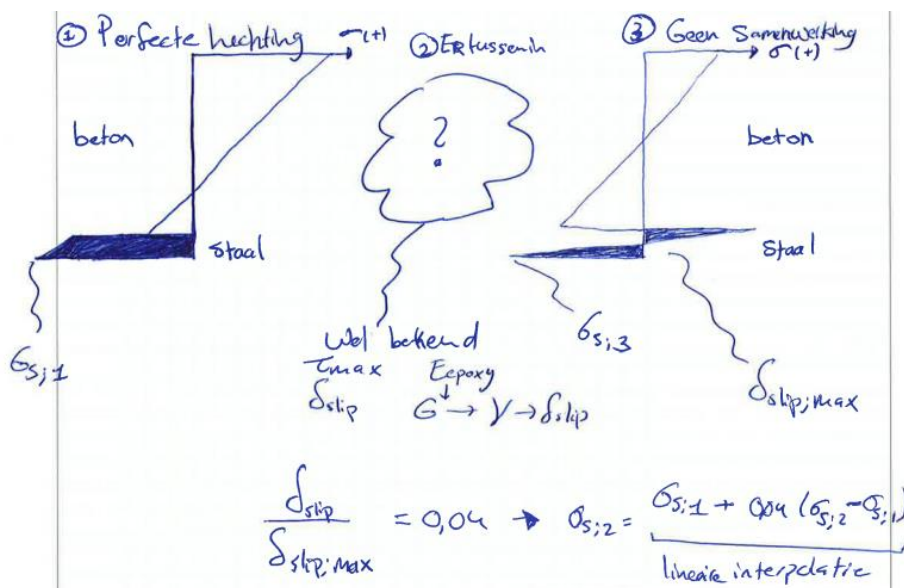 ① Perfecte hechting
σ(+)
② Ertussenin
③ Geen Samenwerking
σ(+)
beton
?
beton
Staal
Staal
σs;1
σs;3
δslip;max
Wel bekend
τmax Eepoxy
δslip G → γ → δslip
δslip / δslip;max = 0,04 → σs;2 = σs;1 + 0,04 (σs;2 - σs;1)
lineaire interpolatie